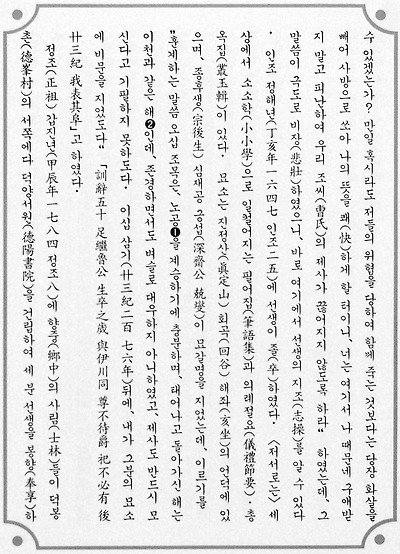 수 있겠는가? 만일 혹시라도 저들의 위협을 당하여 함께 죽는 것보다는 당장 화살을
빼어 사방으로 쏘아 나의 뜻을 쾌(快)하게 할 터이니, 너는 여기서 나 때문에 구애받
지 말고 피난하여 우리 조씨(曺氏)의 제사가 끊어지지 않도록 하라" 하였는데, 그
말씀이 극도로 비장(悲壯)하였으니, 바로 여기에서 선생의 지조(志操)를 알 수 있다
· 인조 정해년(丁亥年 一六四七 인조 二五)에 선생이 졸(卒)하였다· 〈저서로는〉 세
상에서 소소학(小小學)으로 일컬어지는 필어집(筆語集)과 의례절요(儀禮節要)·총
옥집(叢玉輯)이 있다· 묘소는 진정산(眞定山) 회곡(回谷) 해좌(亥坐)의 언덕에 있
으며, 종후생(宗後生) 심재공 긍섭(深齋公 兢燮)이 묘갈명을 지었는데, 이르기를
"훈계하는 말씀 오십 조목은, 노공❶을 계승하기에 충분하며, 태어나고 돌아가신 해는
이천과 같은 해❷인데, 존경하면서도 벼슬로 대우하지 아니하였고, 제사도 반드시 모
신다고 기필하지 못하도다 이십 삼기(廿三紀 二百 七六年)뒤에, 내가 그분의 묘소
에 비문을 지었도다" 「訓辭五十 足繼魯公 生卒之歲 與伊川同 尊不待爵 祀不必有 後
廿三紀 我表其阜」고 하였다·
정조(正祖) 갑진년(甲辰年 一七八四 정조 八)에 향중(鄕中)의 사림(士林)들이 덕봉
촌(德峯村)의 서쪽에다 덕양서원(德陽書院)을 건립하여 세 분 선생을 봉향(奉享)하